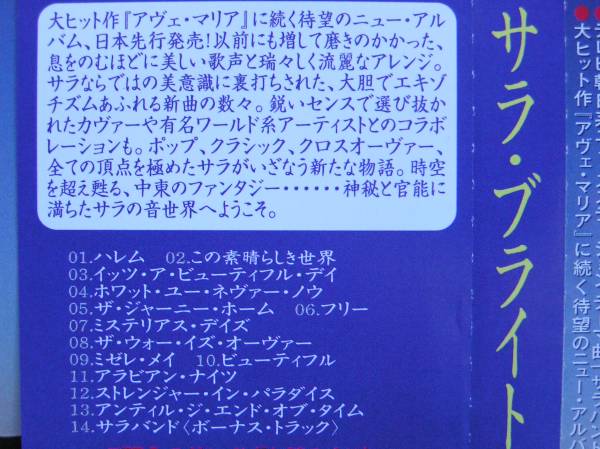 大ヒット作『アヴェ・マリア』に続く待望のニュー・アル
バム、日本先行発売!以前にも増して磨きのかかった、
息をのむほどに美しい歌声と瑞々しく流麗なアレンジ。
サラならではの美意識に裏打ちされた、大胆でエキゾ
チズムあふれる新曲の数々。鋭いセンスで選び抜か
れたカヴァーや有名ワールド系アーティストとのコラボ
レーションも。ポップ、クラシック、クロスオーヴァー、
全ての頂点を極めたサラがいざなう新たな物語。時空
を超え甦る、中東のファンタジー‥‥‥神秘と官能に
満ちたサラの音世界へようこそ。
01.ハレム 02.この素晴らしき世界
03.イッツ・ア・ビューティフル・デイ
04.ホワット・ユー・ネヴァー・ノウ
05.ザ・ジャーニー・ホーム 06.フリー
07.ミステリアス・デイズ
08.ザ・ウォー・イズ・オーヴァー
09.ミゼレ・メイ 10.ビューティフル
11.アラビアン・ナイツ
12.ストレンジャー・イン・パラダイス
13.アンティル・ジ・エンド・オブ・タイム
14.サラバンド〈ボーナス・トラック〉
サラ・ブライト
●大ヒット作『アヴェ・マリア』に続く待望のニュー・アルバ